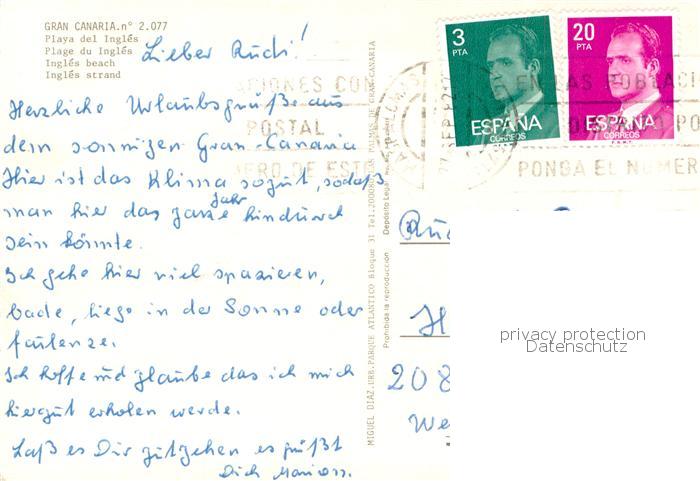 GRAN CANARIA.nº 2.077
Playa del Inglés
Plage du Inglés
Inglés beach
Inglés strand
Lieber Rudi!
Herzliche Urlaubsgrüße aus
dem sonnigen Gran-Canaria
Hier ist das Klima sogut, sodaß
man hier das ganze Jahr hindurch
sein könnte.
Ich gehe hier viel spazieren,
bade, liege in der Sonne oder
faulenze.
Ich hoffe und glaube das ich mich
hiergut erholen werde.
Laß es Dir gutgehen es grüßt
Dich
MIGUEL DIAZ.URB.PARQUE ATLANTICO Bloque 31 Tel.200080 LAS PALMAS DE GRAN CANARIA
Prohibida la reproducción
Depósito Legal
3
PTA
ESPAÑA
CORREOS
20
PTA
ESPAÑA
CORREOS
POSTAL
EN LAS POBLACI
PONGA EL NUMER
208
We
privacy protection
Datenschutz